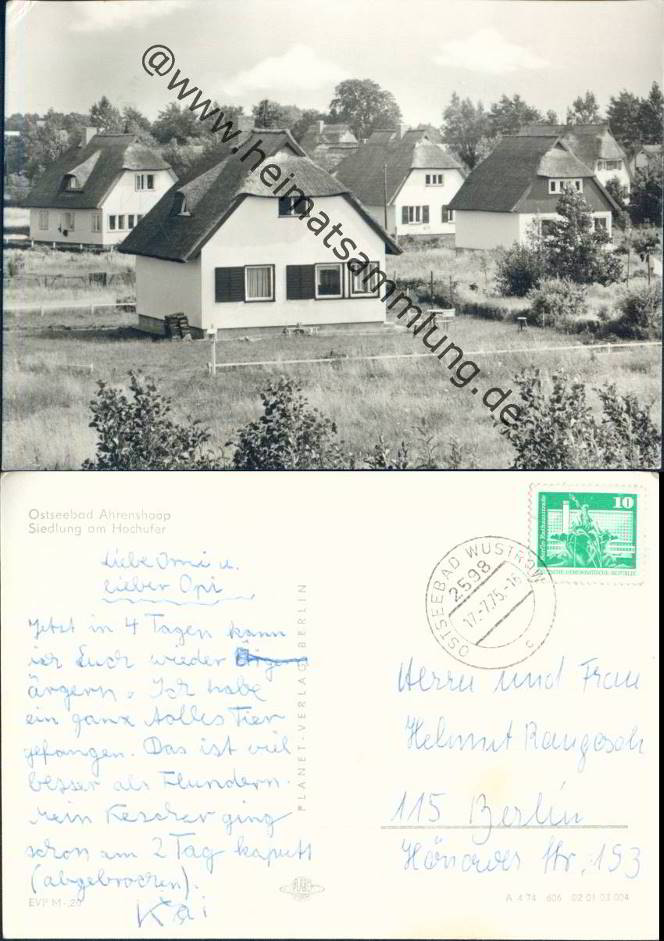 @www.heimatsammlung.de
Ostseebad Ahrenshoop
Siedlung am Hochufer
Liebe Omi u.
lieber Opi
Jetzt in 4 Tagen kann
ich Euch wieder
ärgern. Ich habe
ein ganz tolles Tier
gefangen. Das ist viel
besser als Flundern.
Mein Kescher ging
schon am 2 Tag kaputt
(abgebrochen).
Kai
EVP M -,20
PLANET-VERLAG BERLIN
OSTSEEBAD WUSTROW
2598
17.-7.75.-16
c
10
DEUTSCHE DEMOKRATISCHE REPUBLIK
Herrn und Frau
Helmut
115 Berlin
Str. 193
A 4 74 606 02 01 03 004